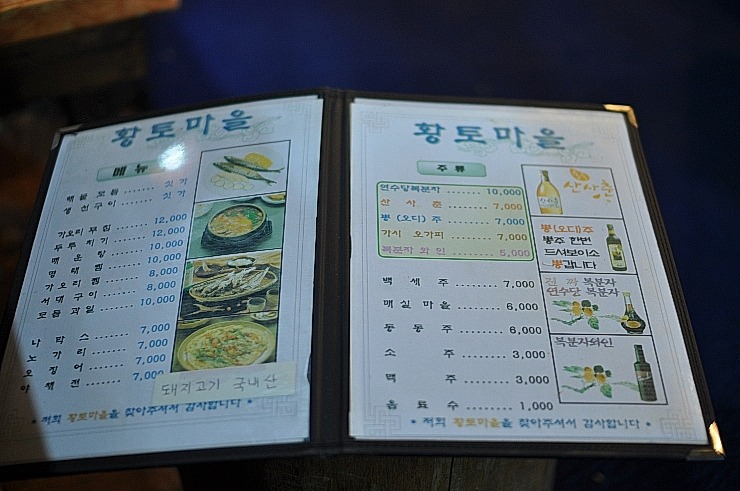 황토마을
메뉴
해물모듬 ....... 싯가
생선구이 ....... 싯가
가오리무침 ..... 12,000
두루치기 ....... 12,000
매운탕 ......... 10,000
명태찜 ......... 10,000
가오리찜 ....... 8,000
서대구이 ....... 8,000
모듬과일 ....... 10,000
낙타스 ....... 7,000
노가리 ....... 7,000
오징어 ....... 7,000
야채전 ....... 7,000
돼지고기 국내산
* 저희 황토마을을 찾아주셔서 감사합니다 *
황토마을
주류
연수당복분자 ....... 10,000
산사춘 ....... 7,000
뽕(오디)주 ....... 7,000
가시 오가피 ....... 7,000
복분자 와인 ....... 5,000
백세주 ....... 7,000
매실 마을 ....... 6,000
동동주 ....... 6,000
소주 ....... 3,000
맥주 ....... 3,000
음료수 ....... 1,000
산사춘
뽕(오디)주
뽕주 한번
드셔보이소
뽕갑니다
진짜 복분자
연수당 복분자
복분자와인
* 저희 황토마을을 찾아주셔서 감사합니다 *